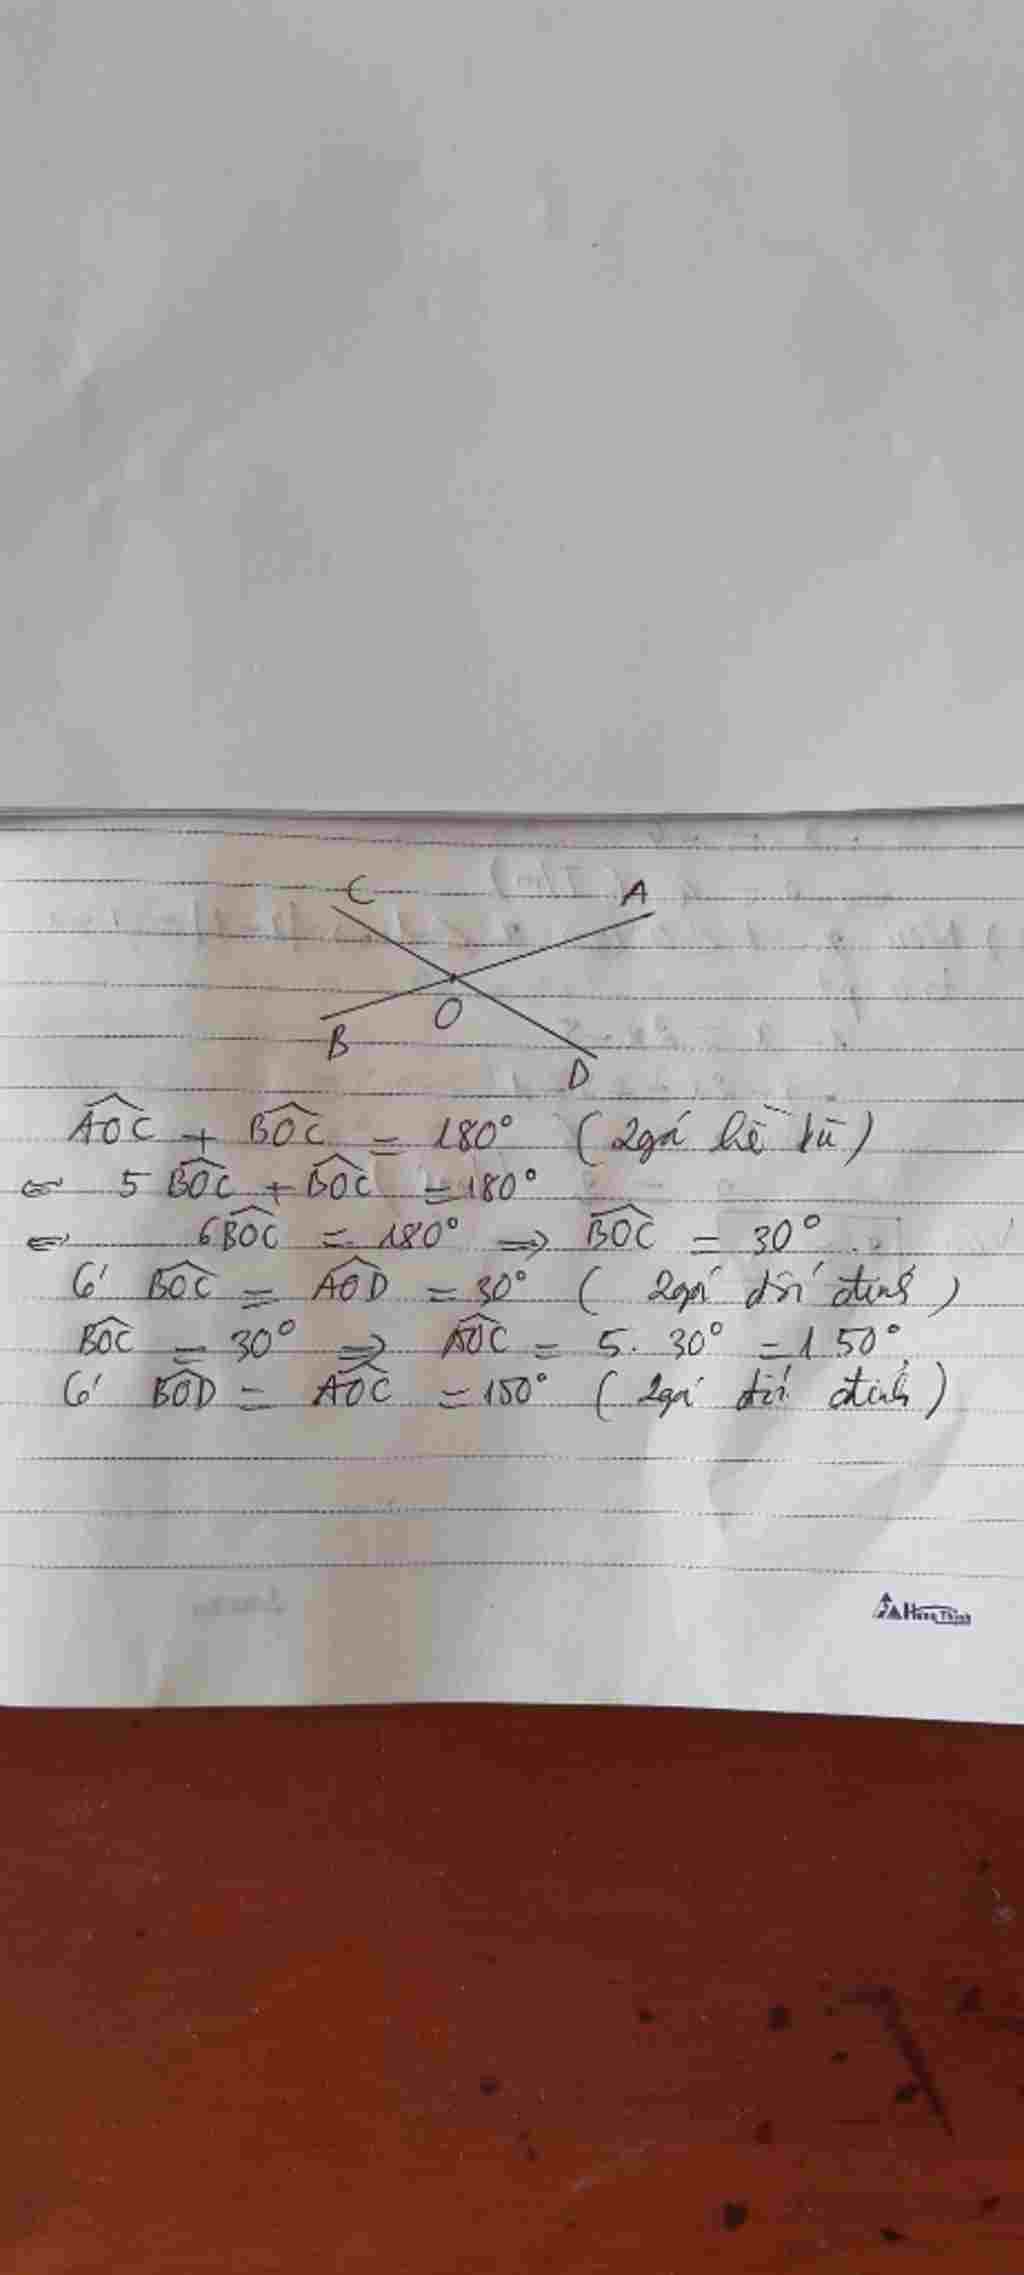 C A
O
B
D
AOC + BOC = 180° (2 góc kề bù)
⇔ 5 BOC + BOC = 180°
⇔ 6BOC = 180° ⇒ BOC = 30°
Có BOC = AOD = 30° (2 góc đối đỉnh)
BOC = 30° ⇒ AOC = 5. 30° = 150°
Có BOD = AOC = 150° (2 góc đối đỉnh)
Hưng Thịnh